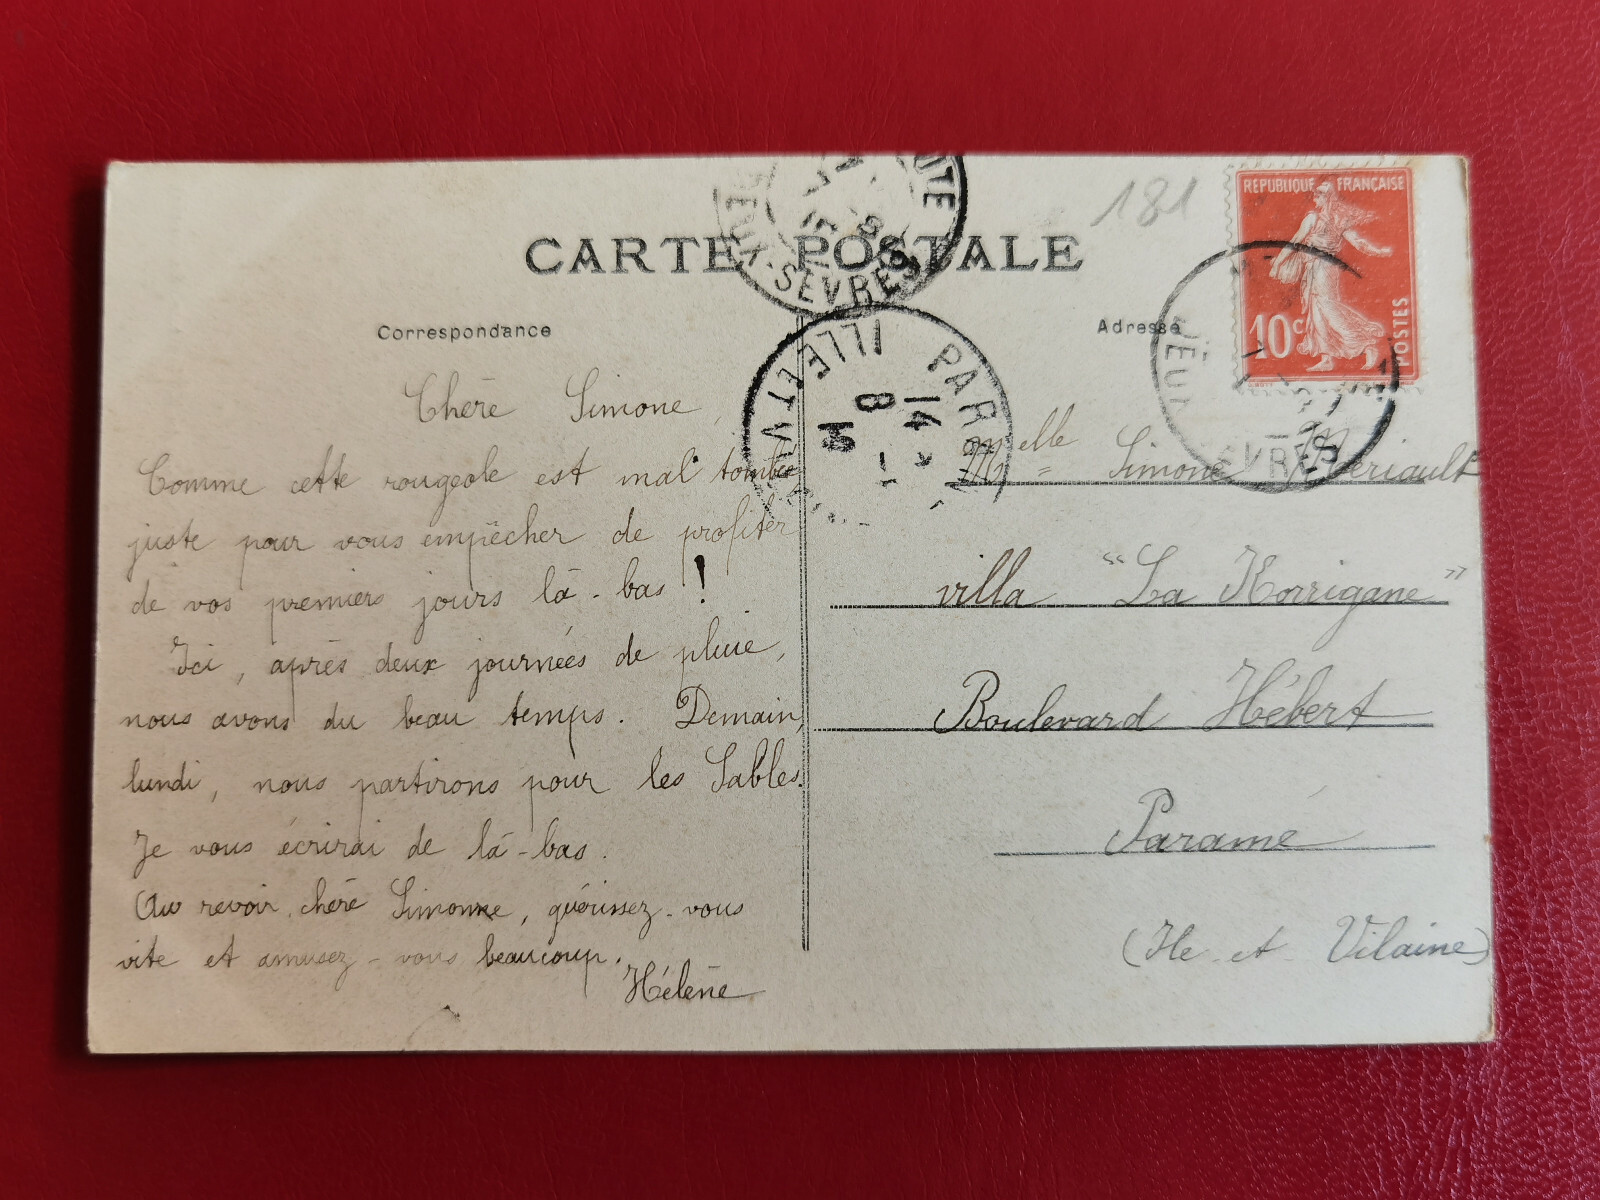 181
REPUBLIQUE FRANÇAISE
10c POSTES
CARTE POSTALE
DEUX-SÈVRES
Correspondance
Adresse
PARAMÉ
14 - 8
ILLE ET VILAINE
Chère Simone,
Comme cette rougeole est mal tombée
juste pour vous empêcher de profiter
de vos premiers jours là-bas !
Ici, après deux journées de pluie,
nous avons du beau temps. Demain,
lundi, nous partirons pour les Sables.
Je vous écrirai de là-bas.
Au revoir, chère Simonne, guérissez-vous
vite et amusez-vous beaucoup.
Hélène
Melle Simone Mériault
villa "La Korrigane"
Boulevard Hébert
Paramé
(Ile et Vilaine)